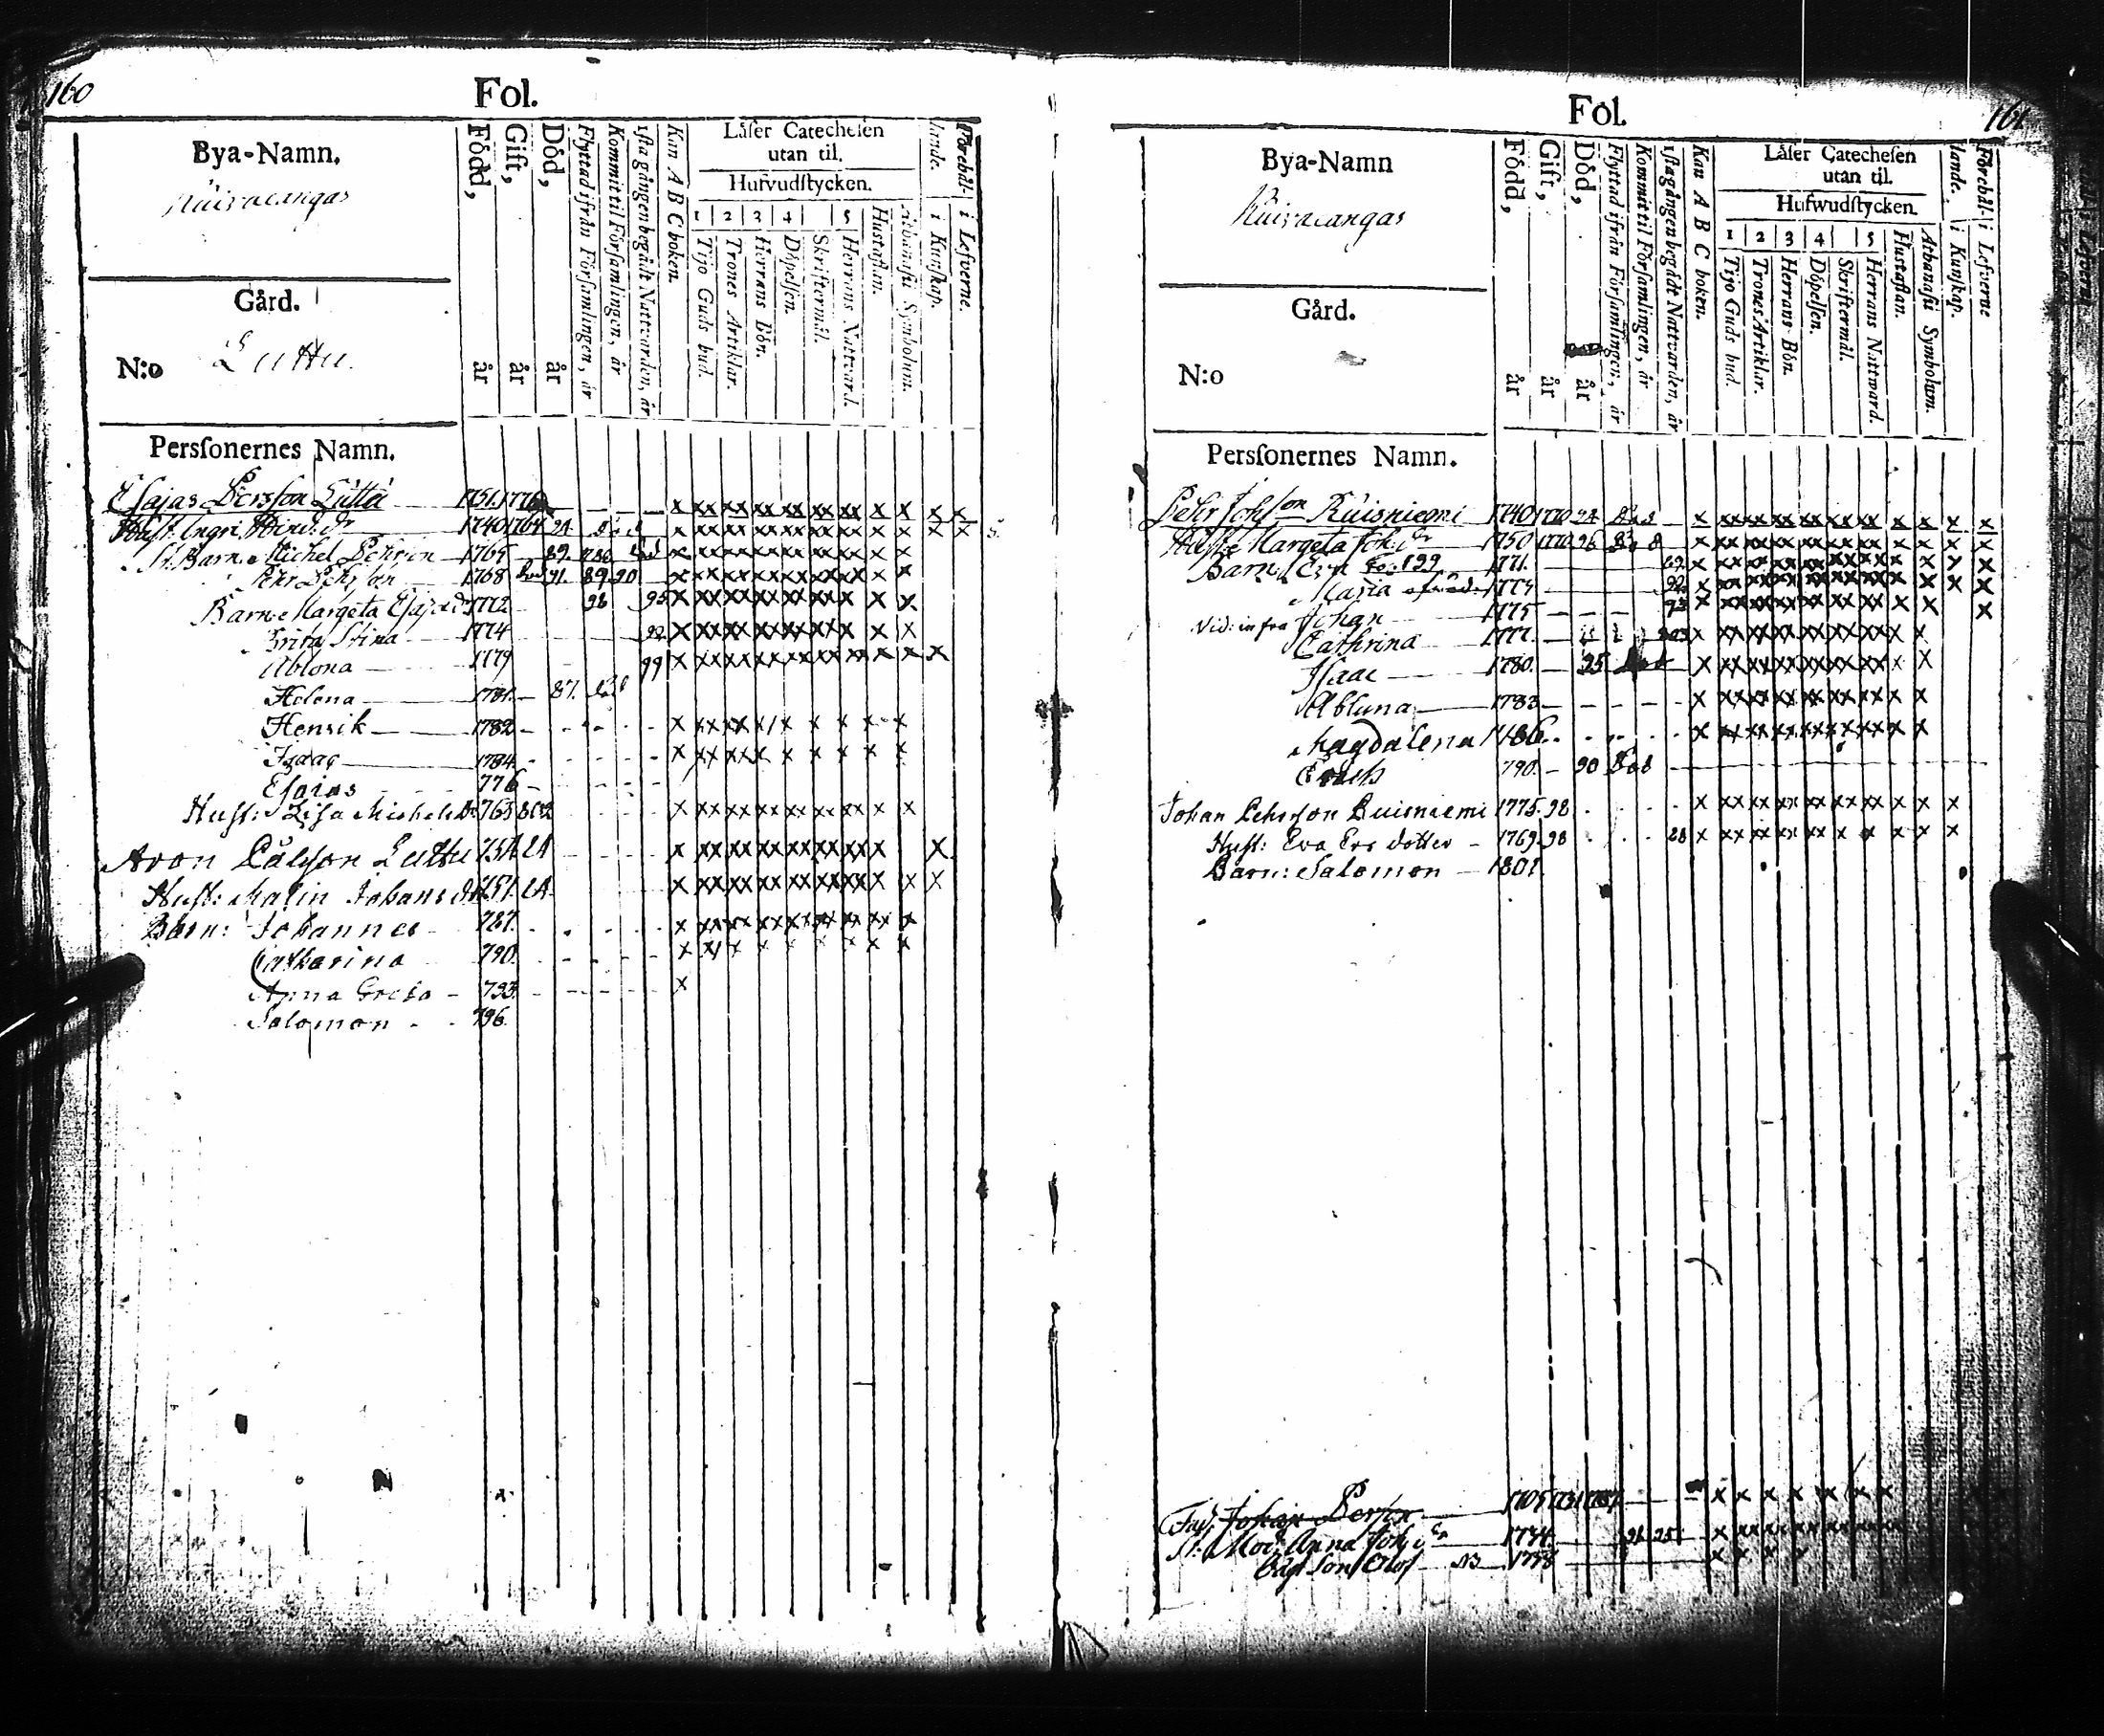 160
Fol.
Bya-Namn.
Kuivacangas
Född, år
Gift, år
Död, år
Flyttad ifrån Församlingen, år
Kommit til Församlingen, år
1sta gången begådt Nattvarden, år
Kan A B C boken.
Låser Catechesen
utan til.
Hufvudstycken.
1 2 3 4 5
Tijo Guds bud.
Trones Artiklar.
Herrans Bön.
Döpelsen.
Skriftermål.
Herrans Nattvard.
Hustaflan.
Athanasii Symbolum.
Förehållande.
i Kunskap.
i Lefverne.
Gård.
N:o Luttu.
Persones Namn.
Esajas Persson Luttu 1751. 1776
Hust. Ingri Hind: dr 1740 1764 94
St. Barn. Michel Pehrson 1765 89.
Pehr Pehrson 1768 91. 89. 90
Barn Margeta Esajæ d. 1772 98 95
Brita Stina 1774 92
Ablona 1779 99
Helena 1781. 87.
Henrik 1782
Isaac 1784
Esaias 776
Hust: Lisa Michels Dr 763 802
Aron Pålsson Luttu 754 24
Hust: Malin Johans dr 751. 24
Barn: Johannes 787.
Catharina 790.
Anna Greta 793.
Salomon 796.
161
Fol.
Bya-Namn
Kuivacangas
Född, år
Gift, år
Död, år
Flyttad ifrån Församlingen, år
Kommit til Församlingen, år
1sta gången begådt Nattvarden, år
Kan A B C boken.
Låser Catechesen
utan til.
Hufwudstycken.
1 2 3 4 5
Tijo Guds bud.
Trones Artiklar.
Herrans Bön.
Döpelsen.
Skriftermål.
Herrans Nattward.
Hustaflan.
Athanasii Symbolum.
Förehållande.
i Kunskap.
i Lefverne
Gård.
N:o
Persones Namn.
Pehr Johson Ruisniemi 1740 1770 94
Hust. Margeta Joh: dr 1750 1770 96
Barn Eva fo: 199 1771.
Maria 1773 92
Vid: infra Johan 1775 93
Cathrina 1777.
Isaac 1780. 95
Abluna 1783
Magdalena 1786.
Enoch 790. 90
Johan Pehrsson Ruisniemi 1775. 98
Hust: Eva Ers dotter 1769. 98 28
Barn: Salomon 1801.
Fad. Johan Persson 1705 1731 1787.
St: Mod: Anna Joh: dr 1734.
Son Olof 1758